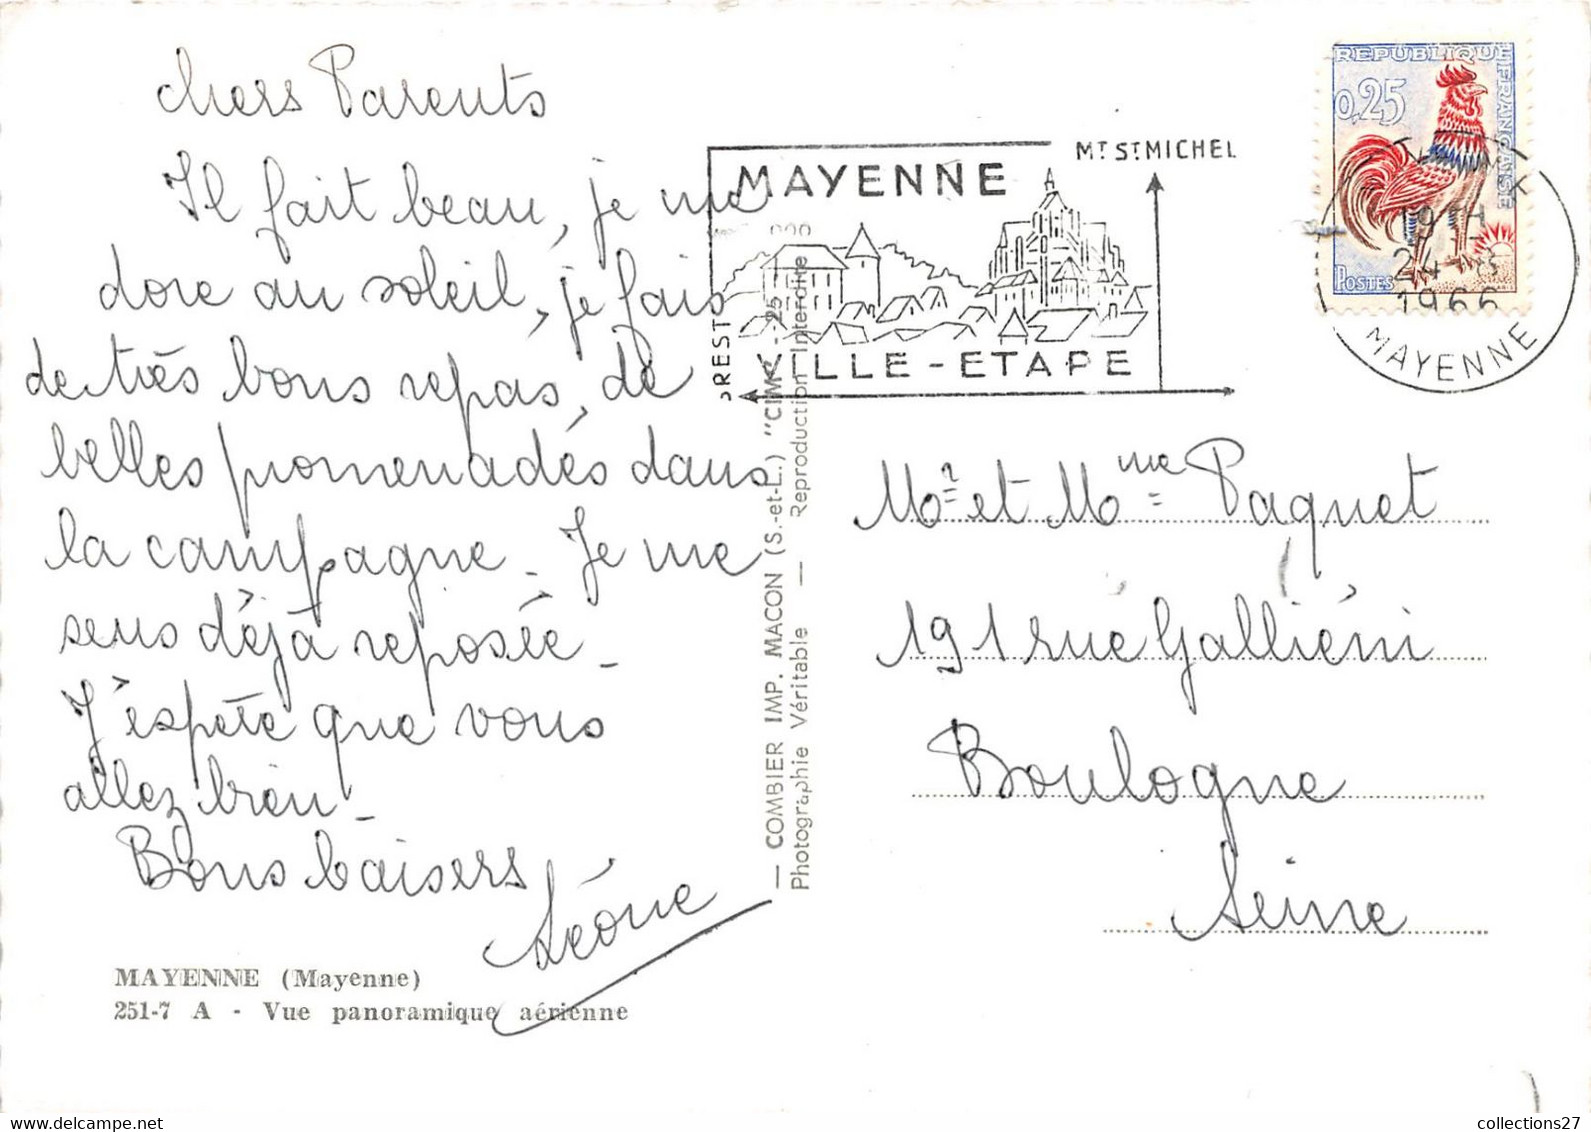 chers Parents
Il fait beau, je me
dore au soleil, je fais
de très bons repas, de
belles promenades dans
la campagne - Je me
sens déjà reposée -
J'espère que vous
allez bien -
Bons baisers
Léone
MAYENNE (Mayenne)
251-7 A - Vue panoramique aérienne
— COMBIER IMP. MACON (S.-et-L.) "CIM"
Photographie Véritable — Reproduction Interdite
MAYENNE
MT ST MICHEL
BREST
VILLE-ETAPE
REPUBLIQUE FRANÇAISE
0,25
POSTES
19 H
24 - 8
1966
MAYENNE
Mr et Mme Paquet
191 rue Galliéni
Boulogne
Seine
collections27